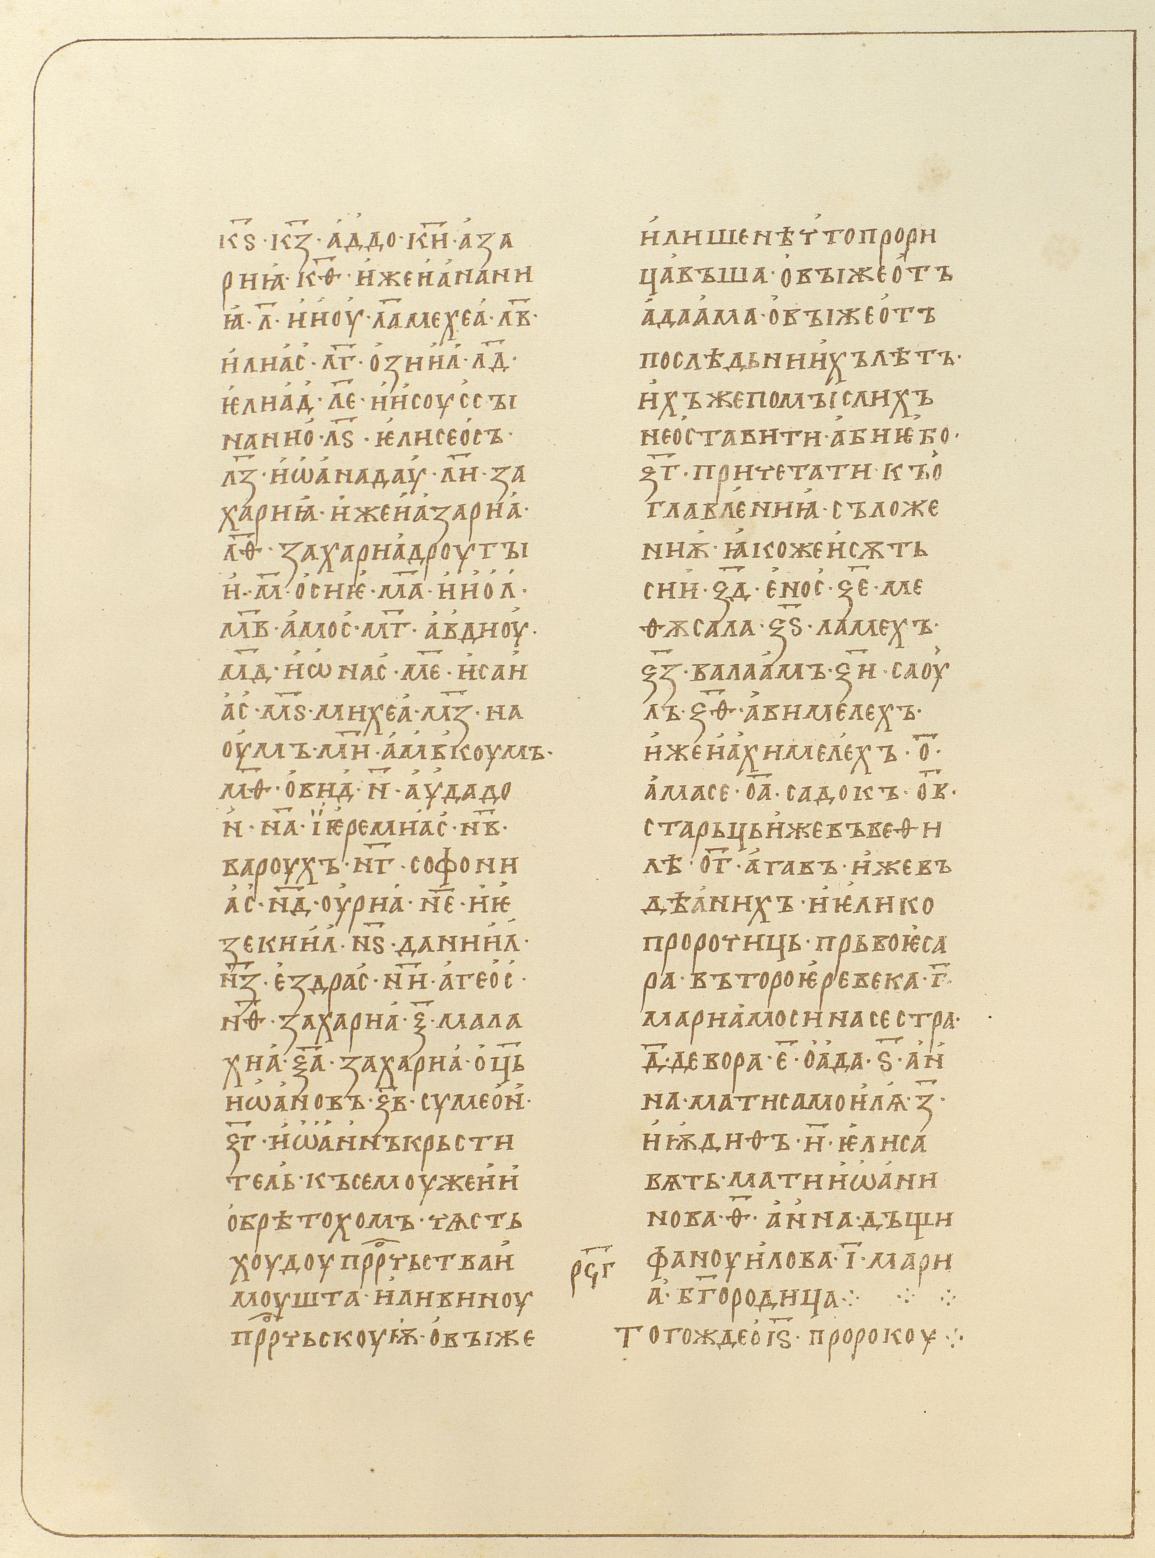 к҃ѕ · к҃ꙁ · а҆ддо · к҃н · а҆ꙁа
рнꙗ҆ · к҃ѳ · и҆женанани
ꙗ҆ · л҃ · и҆ноу҆ · л҃амехеа҆ · л҃в ·
и҆лиа҆с · л҃г · о҆ꙁниа҆ · л҃д ·
ѥ҆лиа҆д · л҃е · и҆и҆соу҆ссꙑ
нанио҆ · л҃ѕ · ѥ҆лисео҆съ ·
л҃ꙁ · и҆ѡ҆а҆надау҆ · л҃н · ꙁа
хариꙗ҆ · и҆женаꙁариа҆ ·
л҃ѳ · ꙁахариа҆дроугꙑ
и҆ · м҃ · о҆сиѥ҆ · м҃а · и҆и҆о҆л ·
м҃в · а҆мо҆с · м҃г · а҆вдиоу҆ ·
м҃д · и҆ѡ҆нас · м҃е · и҆саи҆
а҆с · м҃ѕ · михеа҆ · м҃ꙁ · на
оу҆мъ · м҃н · а҆мвꙗкоумъ ·
м҃ѳ · о҆вид · н҃ · а҆у҆дадо
и҆ · н҃а · їѥ҆ремиа҆с · н҃в ·
вароухъ · н҃г · софони
а҆с · н҃д · оу҆риа҆ · н҃е · и҆ѥ҆
ꙁекии҆л · н҃ѕ · дании҆л ·
н҃ꙁ · е҆ꙁдрас · н҃н · а҆гео҆с ·
н҃ѳ · ꙁахариа҆ · ѯ҃ · мала
хиа҆ · ѯ҃а · ꙁахариа҆ · о҆ц҃ь
иѡ҆а҆новъ · ѯ҃в · сумео҆н ·
ѯ҃г · и҆ѡ҆а҆ннъкрьсти
тель · късемоужеи҆и҆
о҆брѣтохомъ · чѧсть
хоудоупррⷪ҇чьстваи҆
моушта · и҆а҆нвиноу
пррⷪ҇чьскоуѭ҆ · о҆вꙑже
и҆лишенѣчтопрори
ца҆въша · о҆вꙑжео҆тъ
а҆даа҆ма · о҆вꙑжео҆тъ
послѣдьнии҆хълѣтъ ·
и҆хъжепомꙑслихъ
нео҆ставити · а҆биѥ҆бо ·
ѯ҃г · причетати · къо҆
главлениꙗ҆ · съложе
ниѫ҆ · ꙗ҆коже҆и҆сѫть
сии҆ · ѯ҃д · е҆нос · ѯ҃е · ме
ѳѫсала · ѯ҃ѕ · ламехъ ·
ѯ҃ꙁ · валаа҆мъ · ѯ҃н · саоу҆
лъ · ѯ҃ѳ · а҆вимелехъ ·
и҆женахимелехъ · о҃ ·
а҆масе · о҃а · садокъ · о҃в ·
старьцьи҆жевъвеѳи
лѣ · о҃г · а҆гавъ · и҆жевъ
дѣа҆нихъ · и҆ѥ҆лико
пророчиць · прьвоѥ҆са
ра · въторѥ҆ревека · г҃ ·
мариа҆моси҆насестра ·
д҃ · девора · е҃ · о҆а҆да · ѕ҃ · а҆н
на · матисамои҆лꙗ · ꙁ҃ ·
и҆ѭдиѳъ · и҃ · ѥ҆лиса
вѧть · матии҆ѡ҆а҆ни
нова · ѳ҃ · а҆нна · дъщи
фаноуи҆лова · і҃ · мари
а҆ · б҃городица ⁘ ⁘ ⁘
рч҃г
тогождео҆і҃ѕ · пророкоу ⁘